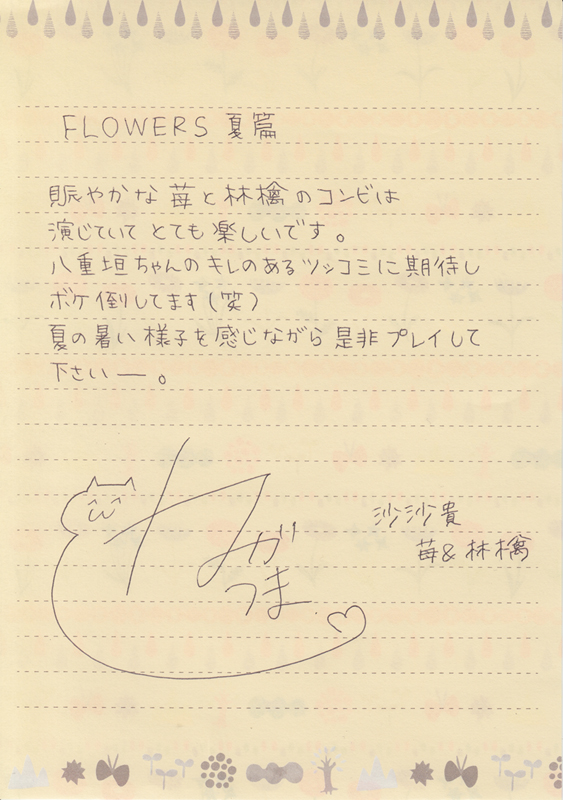 FLOWERS 夏篇
賑やかな苺と林檎のコンビは
演じていてとても楽しいです。
八重垣ちゃんのキレのあるツッコミに期待し
ボケ倒してます(笑)
夏の暑い様子を感じながら是非プレイして
下さいー。
がつま
沙沙貴
苺&林檎